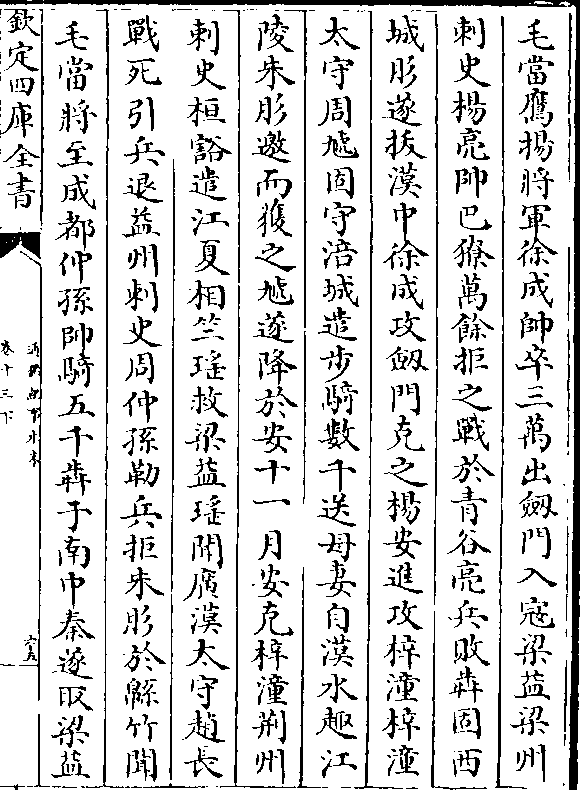 毛當鷹揚將軍徐成帥卒三萬出劔門入寇梁益梁州
刺史楊亮帥巴獠萬餘拒之戰於青谷亮兵敗犇固西
城彤遂拔漢中徐成攻劔門克之楊安進攻梓潼梓潼
太守周虓固守涪城遣步騎數千送母妻自漢水趣江
陵朱彤邀而獲之虓遂降於安十一月安克梓潼荆州
刺史桓豁遣江夏相竺瑤救梁益瑤聞廣漢太守趙長
戰死引兵退益州刺史周仲孫勒兵拒朱彤於緜竹聞
毛當將至成都仲孫帥騎五千犇于南中秦遂取梁益
欽定四庫全書
通鑑紀事本末
卷十三下
六五